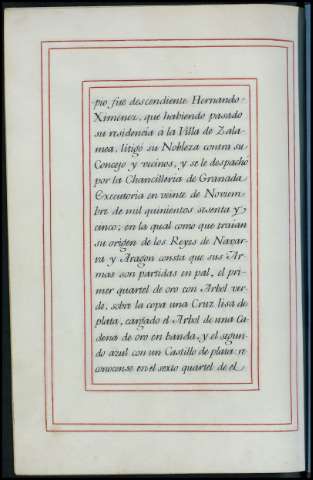 pio fue descendiente Hernando
Ximenez, que habiendo pasado
su residencia à la Villa de Zala-
mea, litigó su Nobleza contra su
Concejo y vecinos, y se le despachó
por la Chancilleria de Granada
Executoria en veinte de Noviem-
bre de mil quinientos sesenta y
cinco; en la qual como que traian
su origen de los Reyes de Navar-
ra y Aragon consta que sus Ar-
mas son partidas en pal, el pri-
mer quartel de oro con Arbol ver-
de, sobre la copa una Cruz lisa de
plata, cargado el Arbol de una Ca-
dena de oro en banda, y el segun-
do azul con un Castillo de plata: re
conocense en el sexto quartel de el